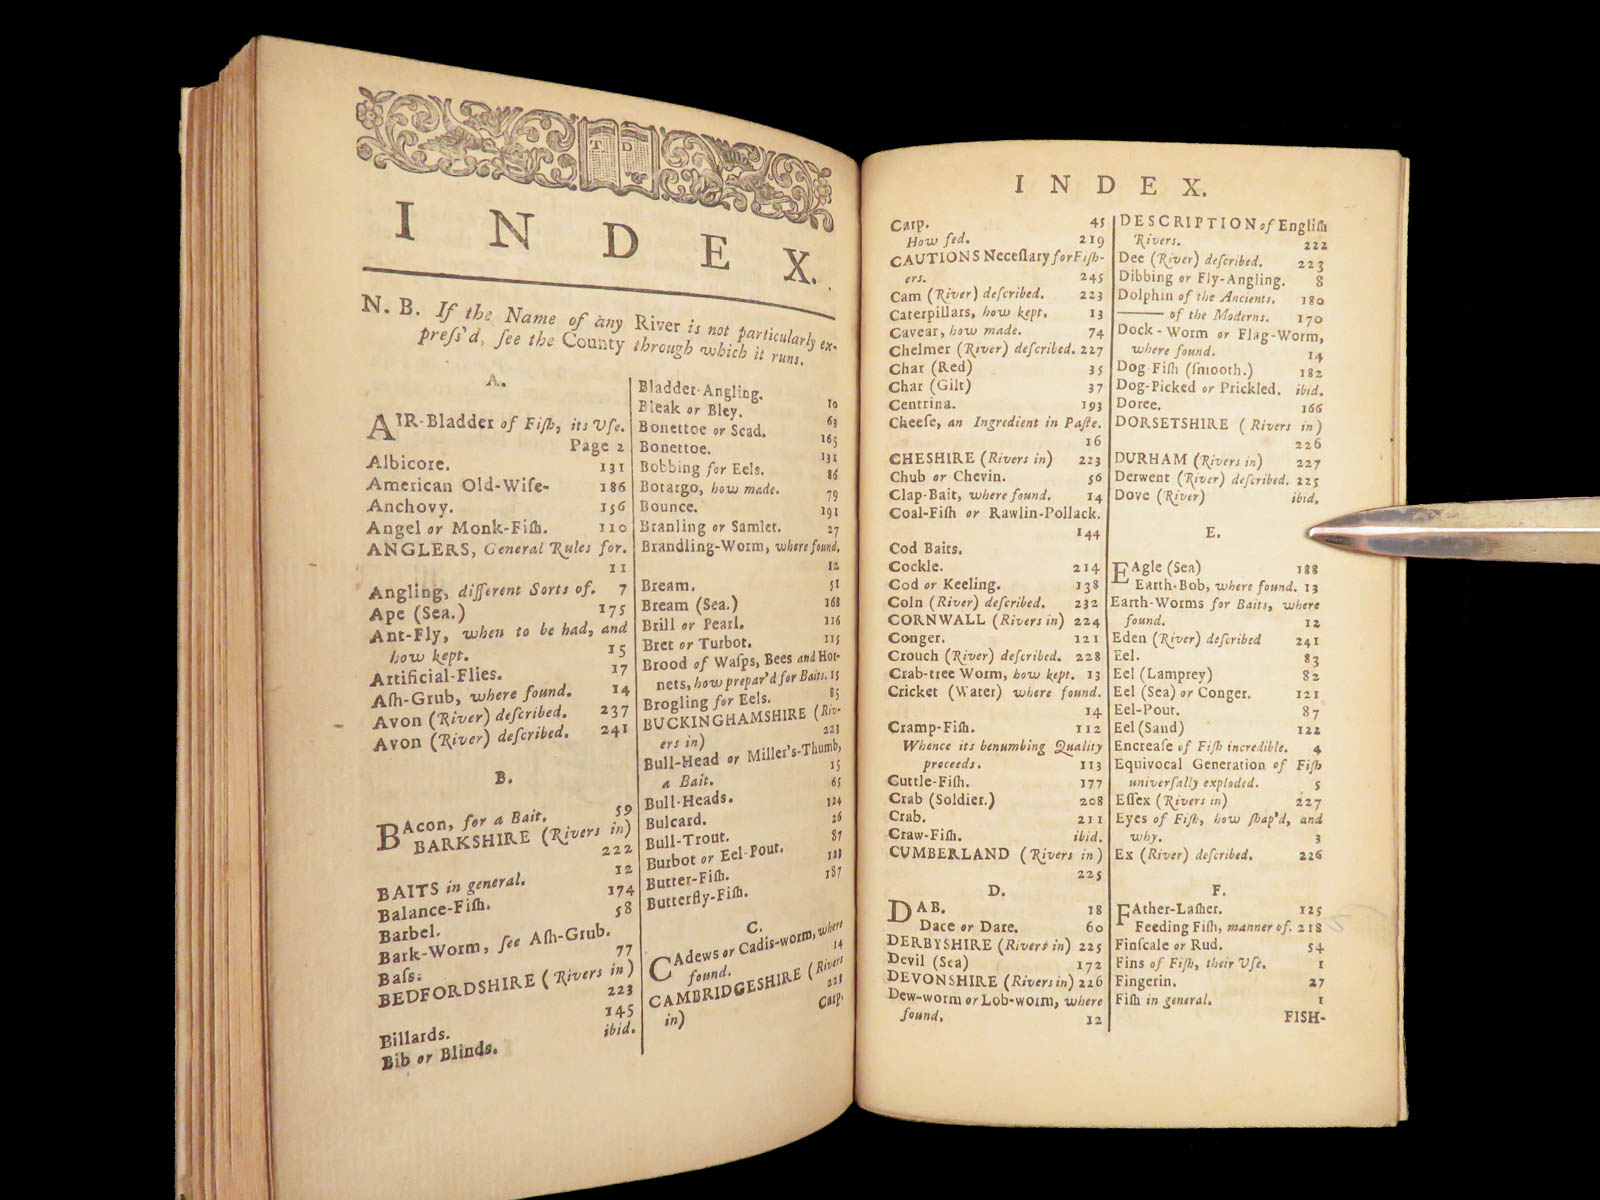 T D
I N D E X.
N. B. If the Name of any River is not particularly ex-
preſs'd, ſee the County through which it runs.
A.
AIR-Bladder of Fiſh, its Uſe.
Page 2
Albicore. 131
American Old-Wife- 186
Anchovy. 156
Angel or Monk-Fiſh. 110
ANGLERS, General Rules for.
11
Angling, different Sorts of. 7
Ape (Sea.) 175
Ant-Fly, when to be had, and
how kept. 15
Artificial-Flies. 17
Aſh-Grub, where found. 14
Avon (River) deſcribed. 237
Avon (River) deſcribed. 241
B.
BAcon, for a Bait. 59
BARKSHIRE (Rivers in)
222
BAITS in general. 12
Balance-Fiſh. 174
Barbel. 58
Bark-Worm, ſee Aſh-Grub.
Baſs. 77
BEDFORDSHIRE (Rivers in)
223
Billards. 145
Bib or Blinds. ibid.
Bladder-Angling. 10
Bleak or Bley. 63
Bonettoe or Scad. 165
Bonettoe. 131
Bobbing for Eels. 86
Botargo, how made. 79
Bounce. 191
Branling or Samlet. 27
Brandling-Worm, where found.
12
Bream. 51
Bream (Sea.) 168
Brill or Pearl. 116
Bret or Turbot. 115
Brood of Waſps, Bees and Hor-
nets, how prepar'd for Baits. 15
Brogling for Eels. 85
BUCKINGHAMSHIRE (Riv-
ers in) 223
Bull-Head or Miller's-Thumb,
a Bait. 15
Bull-Heads. 65
Bulcard. 124
Bull-Trout. 26
Burbot or Eel-Pout. 87
Butter-Fiſh. 123
Butterfly-Fiſh. 187
C.
CAdews or Cadis-worm, where
found. 14
CAMBRIDGESHIRE (Rivers
in) 223
Carp.
I N D E X.
Carp. 45
How fed. 219
CAUTIONS Neceſſary for Fiſh-
ers. 245
Cam (River) deſcribed. 223
Caterpillars, how kept. 13
Cavear, how made. 74
Chelmer (River) deſcribed. 227
Char (Red) 35
Char (Gilt) 37
Centrina. 193
Cheeſe, an Ingredient in Paſte.
16
CHESHIRE (Rivers in) 223
Chub or Chevin. 56
Clap-Bait, where found. 14
Coal-Fiſh or Rawlin-Pollack.
144
Cod Baits.
Cockle. 214
Cod or Keeling. 138
Coln (River) deſcribed. 232
CORNWALL (Rivers in) 224
Conger. 121
Crouch (River) deſcribed. 228
Crab-tree Worm, how kept. 13
Cricket (Water) where found.
14
Cramp-Fiſh. 112
Whence its benumbing Quality
proceeds. 113
Cuttle-Fiſh. 177
Crab (Soldier.) 208
Crab. 211
Craw-Fiſh. ibid.
CUMBERLAND (Rivers in)
225
D.
DAB. 18
Dace or Dare. 60
DERBYSHIRE (Rivers in) 225
Devil (Sea) 172
DEVONSHIRE (Rivers in) 226
Dew-worm or Lob-worm, where
found. 12
DESCRIPTION of Engliſh
Rivers. 222
Dee (River) deſcribed. 223
Dibbing or Fly-Angling. 8
Dolphin of the Ancients. 180
—— of the Moderns. 170
Dock-Worm or Flag-Worm,
where found. 14
Dog Fiſh (ſmooth.) 182
Dog-Picked or Prickled. ibid.
Doree. 166
DORSETSHIRE (Rivers in)
226
DURHAM (Rivers in) 227
Derwent (River) deſcribed. 225
Dove (River) ibid.
E.
EAgle (Sea) 188
Earth-Bob, where found. 13
Earth-Worms for Baits, where
found. 12
Eden (River) deſcribed 241
Eel. 83
Eel (Lamprey) 82
Eel (Sea) or Conger. 121
Eel-Pout. 87
Eel (Sand) 122
Encreaſe of Fiſh incredible. 4
Equivocal Generation of Fiſh
univerſally exploded. 5
Eſſex (Rivers in) 227
Eyes of Fiſh, how ſhap'd, and
why. 3
Ex (River) deſcribed. 226
F.
FAther-Laſher. 125
Feeding Fiſh, manner of. 218
Finſcale or Rud. 54
Fins of Fiſh, their Uſe. 1
Fingerin. 27
Fiſh in general. 1
FISH-